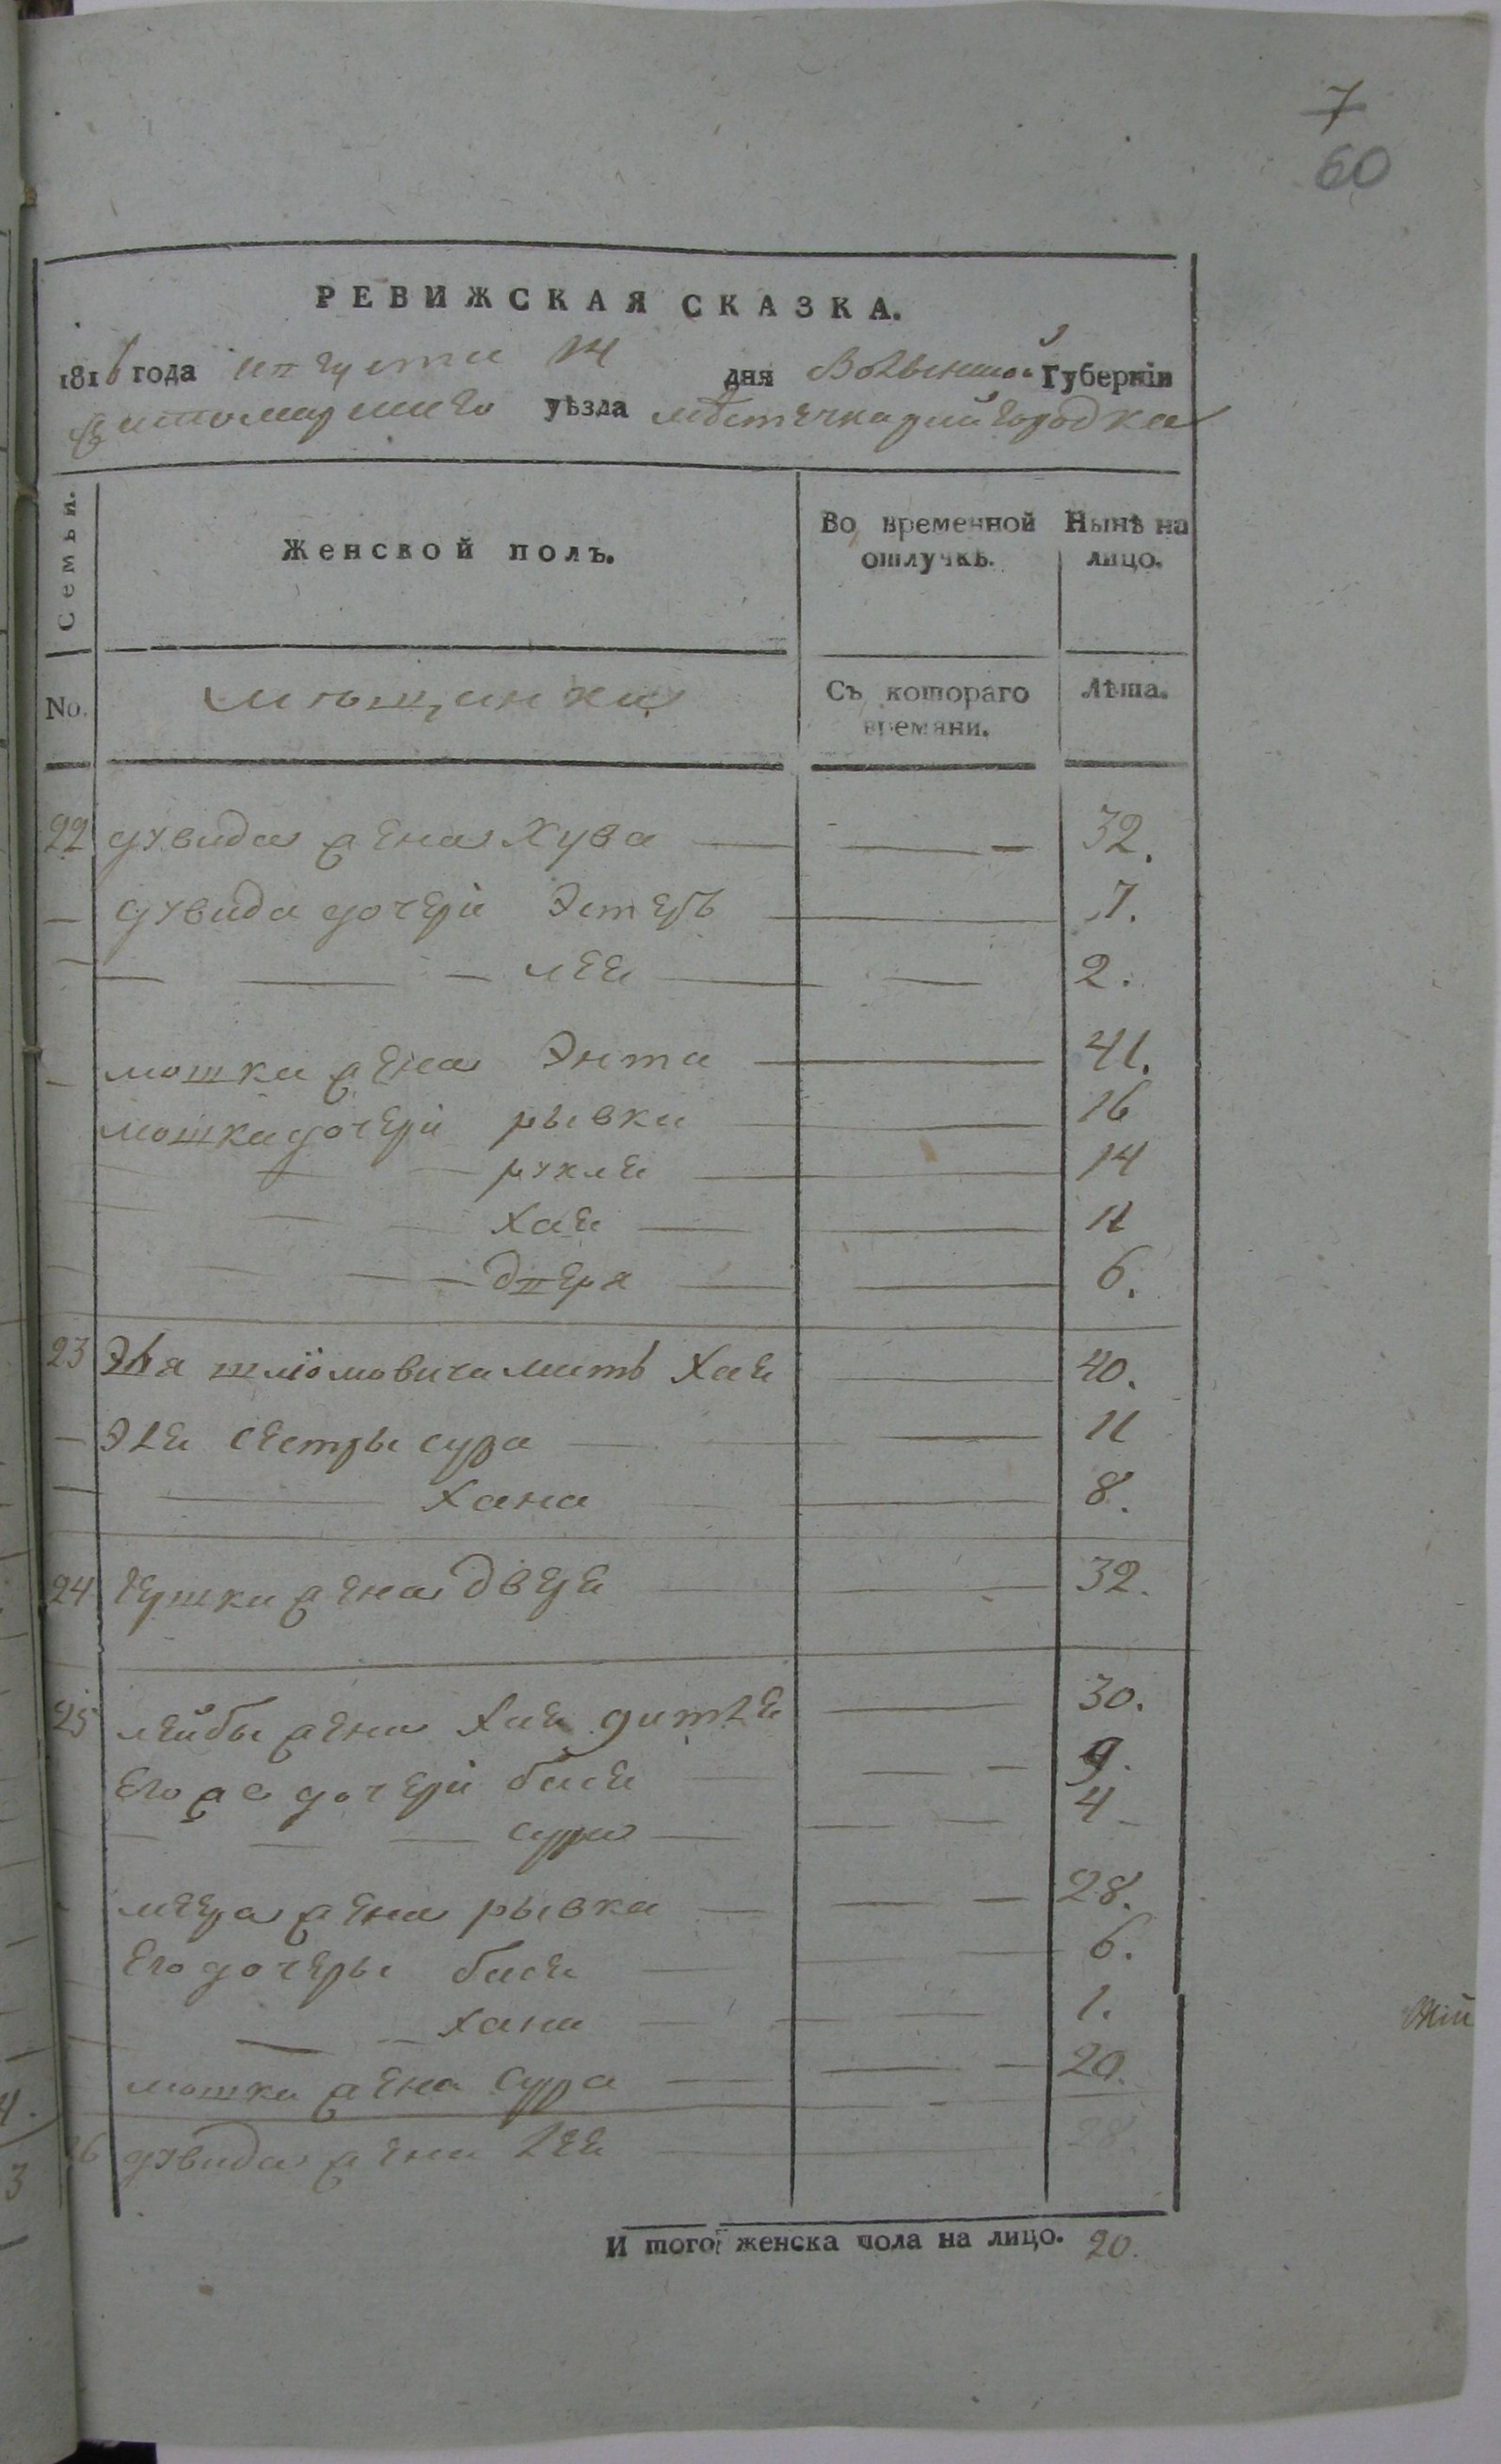 7
60
РЕВИЖСКАЯ СКАЗКА.
1816 года августа 14 дня Волынской Губерніи
Житомирскаго уѣзда мѣстечка Райгородка
Семьи. Женской полъ. Во временной отлучкѣ. Нынѣ на лицо.
No. мѣщанки Съ котораго времяни. Лѣта.
22 дувида жена Хува 32.
дувида дочери Эстеръ 7.
лея 2.
мошка жена Энта 41.
мошка дочери рывка 16
рухля 14
Хая 11
двера 6.
23 шліомовича мать Хая 40.
сестры сура 11
Хана 8.
24 гершка жена Двера 32.
25 лейбы жена Хая 30.
Его же дочери бася 9.
сура 4
меера жена рывка 28.
Его дочеры бася 6.
Хана 1.
мошка жена Сура 20.
26 дувида жена лея 28.
И того женска пола на лицо. 20.